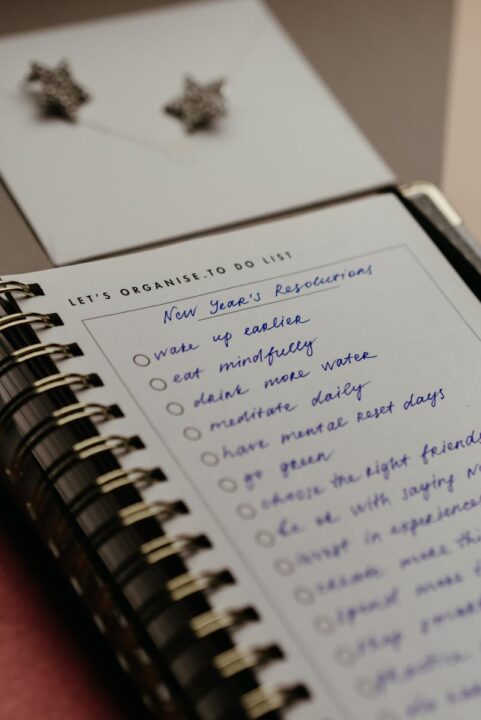 LET'S ORGANISE.TO DO LIST
New Year's Resolutions
wake up earlier
eat mindfully
drink more water
meditate daily
have mental reset days
go green
choose the right friends
be ok with saying
invest in experience
create more
spend more
stop
practice